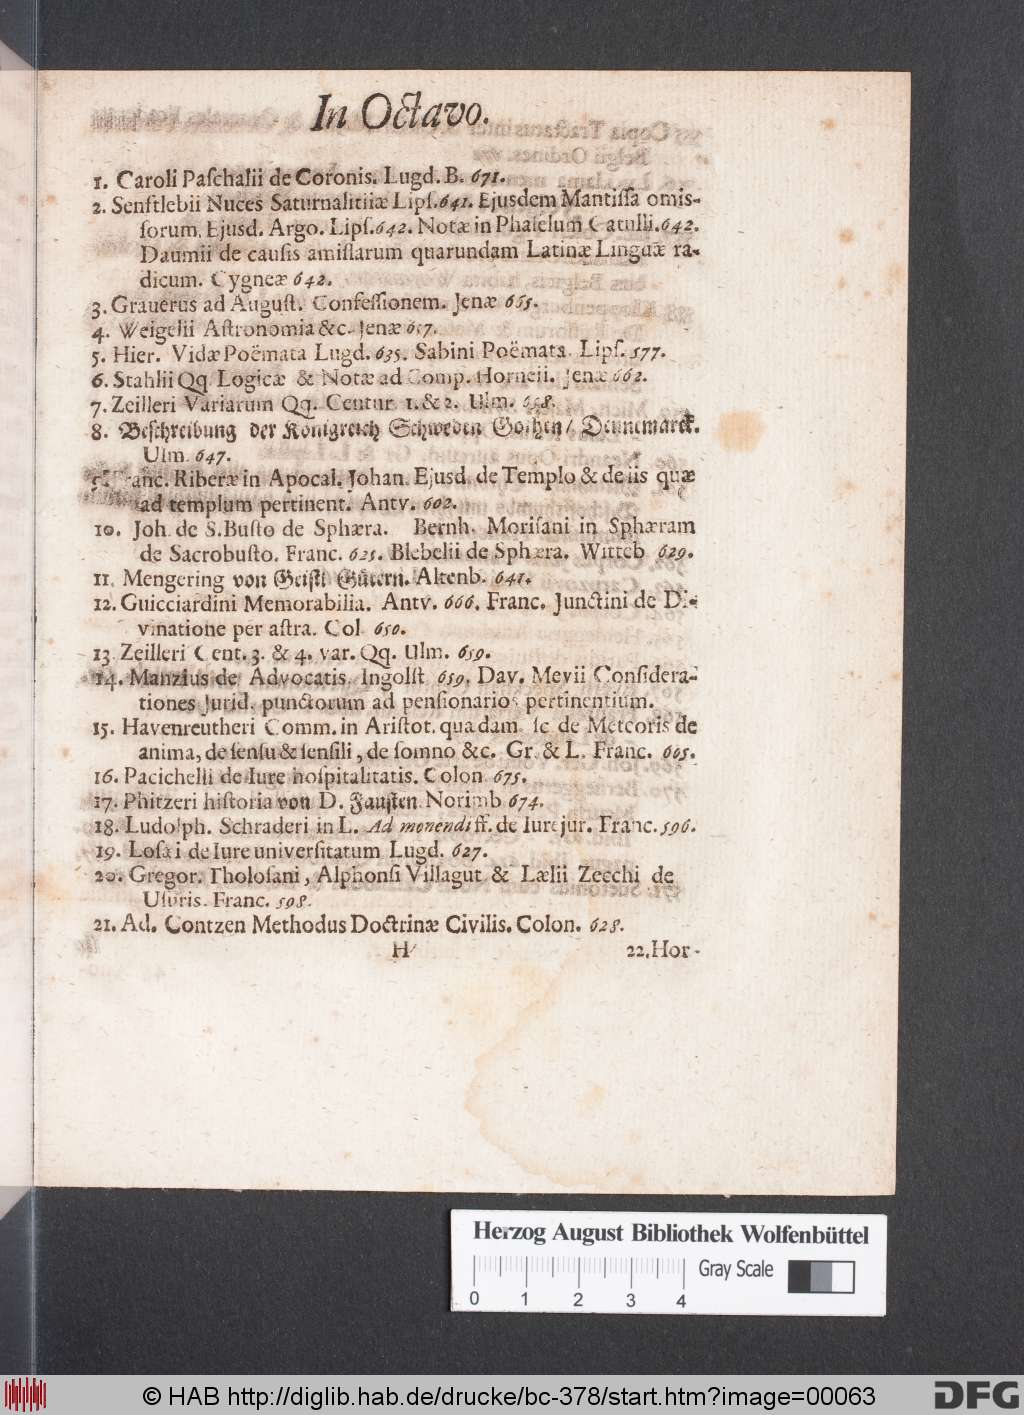 In Octavo.
1. Caroli Paſchalii de Coronis. Lugd. B. 671.
2. Senftlebii Nuces Saturnalitiiæ Lipſ. 641. Ejusdem Mantiſſa omiſ-
ſorum. Ejusd. Argo. Lipſ. 642. Notæ in Phaſelum Catulli. 642.
Daumii de cauſis amiſſarum quarundam Latinæ Linguæ ra-
dicum. Cygneæ 642.
3. Grauerus ad Auguſt. Confeſſionem. Jenæ 665.
4. Weigelii Aſtronomia &c. Jenæ 657.
5. Hier. Vidæ Poëmata Lugd. 635. Sabini Poëmata. Lipſ. 577.
6. Stahlii Qq. Logicæ & Notæ ad Comp. Horneii. Jenæ 662.
7. Zeilleri Variarum Qq. Centur. 1. & 2. Ulm. 658.
8. Beſchreibung der Königreich Schweden Gothen/ Dennemarck.
Ulm. 647.
9. Franc. Riberæ in Apocal. Johan. Ejusd. de Templo & de iis quæ
ad templum pertinent. Antv. 602.
10. Joh. de S. Buſto de Sphæra. Bernh. Moriſani in Sphæram
de Sacrobuſto. Franc. 625. Blebelii de Sphæra. Witteb 629.
11. Mengering von Geiſtl Gütern. Altenb. 641.
12. Guicciardini Memorabilia. Antv. 666. Franc. Junctini de Di-
vinatione per aſtra. Col. 650.
13. Zeilleri Cent. 3. & 4. var. Qq. Ulm. 659.
14. Manzius de Advocatis. Ingolſt 659. Dav. Mevii Conſidera-
tiones Jurid. punctorum ad penſionarios pertinentium.
15. Havenreutheri Comm. in Ariſtot. quadam. ſc de Meteoris de
anima, de ſenſu & ſenſili, de ſomno &c. Gr. & L. Franc. 605.
16. Pacichelli de Iure hoſpitalitatis. Colon 675.
17. Phitzeri hiſtoria von D. Fauſten Norimb 674.
18. Ludolph. Schraderi in L. Ad monendi ff. de Iurejur. Franc. 596.
19. Losæi de Iure univerſitatum Lugd. 627.
20. Gregor. Tholoſani, Alphonſi Villagut & Lælii Zecchi de
Uſuris. Franc. 598.
21. Ad. Contzen Methodus Doctrinæ Civilis. Colon. 628.
H
22. Hor-
Herzog August Bibliothek Wolfenbüttel
Gray Scale
0 1 2 3 4
© HAB http://diglib.hab.de/drucke/bc-378/start.htm?image=00063
DFG